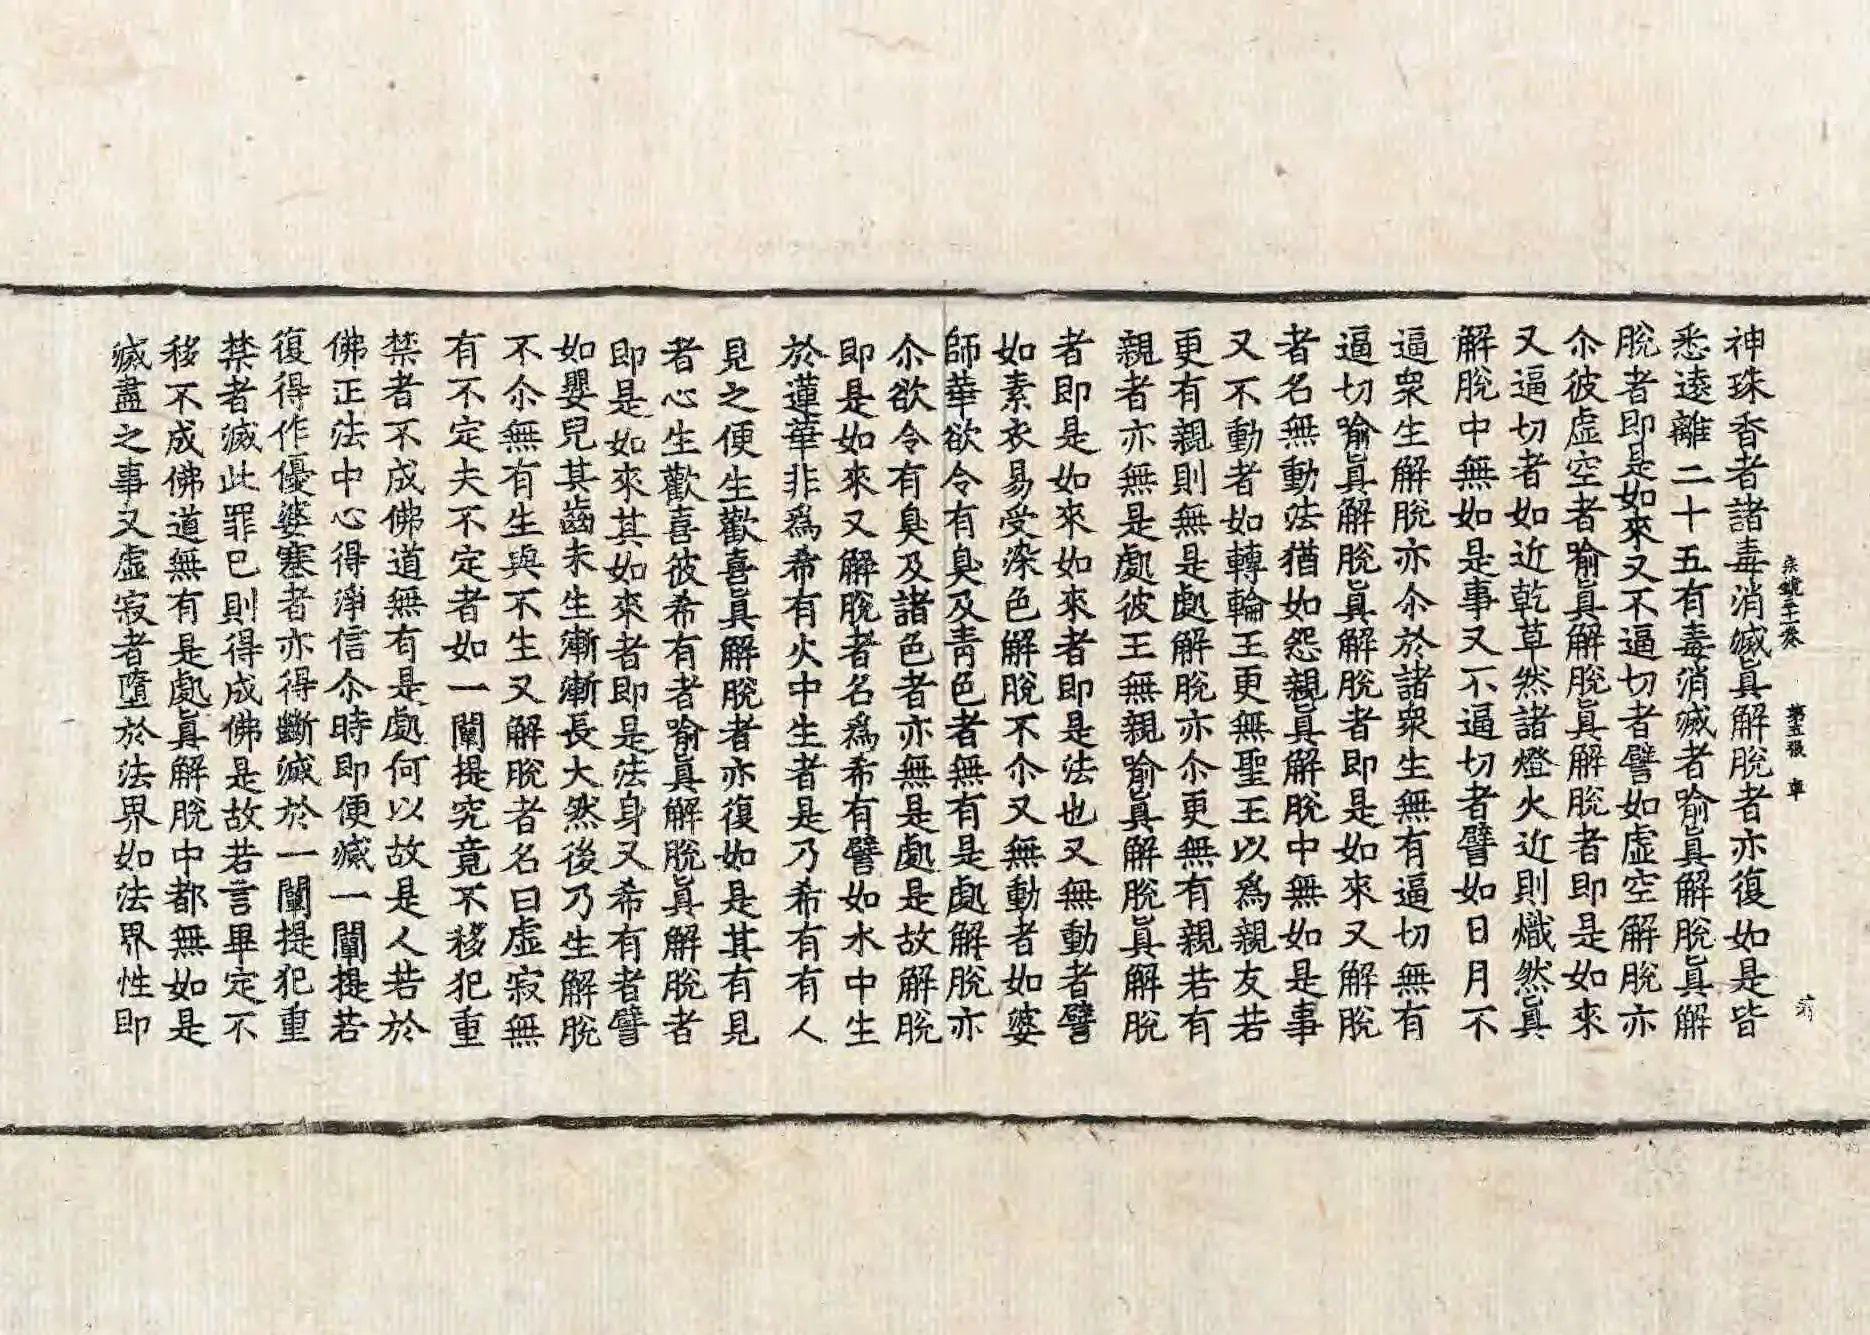 神珠香者諸毒消滅眞解脫者亦復如是皆
悉遠離二十五有毒消滅者喻眞解脫眞解
脫者即是如來又不逼切者譬如虛空解脫亦
尒彼虛空者喻眞解脫眞解脫者即是如來
又逼切者如近乾草然諸燈火近則熾然眞
解脫中無如是事又不逼切者譬如日月不
逼衆生解脫亦尒於諸衆生無有逼切無有
逼切喻眞解脫眞解脫者即是如來又解脫
者名無動法猶如怨親眞解脫中無如是事
又不動者如轉輪王更無聖王以爲親友若
更有親則無是處解脫亦尒更無有親若有
親者亦無是處彼王無親喻眞解脫眞解脫
者即是如來如來者即是法也又無動者譬
如素衣易受染色解脫不尒又無動者如婆
師華欲令有臭及青色者無有是處解脫亦
尒欲令有臭及諸色者亦無是處是故解脫
即是如來又解脫者名爲希有譬如水中生
於蓮華非爲希有火中生者是乃希有有人
見之便生歡喜眞解脫者亦復如是其有見
者心生歡喜彼希有者喻眞解脫眞解脫者
即是如來其如來者即是法身又希有者譬
如嬰兒其齒未生漸漸長大然後乃生解脫
不尒無有生與不生又解脫者名曰虛寂無
有不定夫不定者如一闡提究竟不移犯重
禁者不成佛道無有是處何以故是人若於
佛正法中心得淨信尒時即便滅一闡提若
復得作優婆塞者亦得斷滅於一闡提犯重
禁者滅此罪已則得成佛是故若言畢定不
移不成佛道無有是處眞解脫中都無如是
滅盡之事又虛寂者墮於法界如法界性即